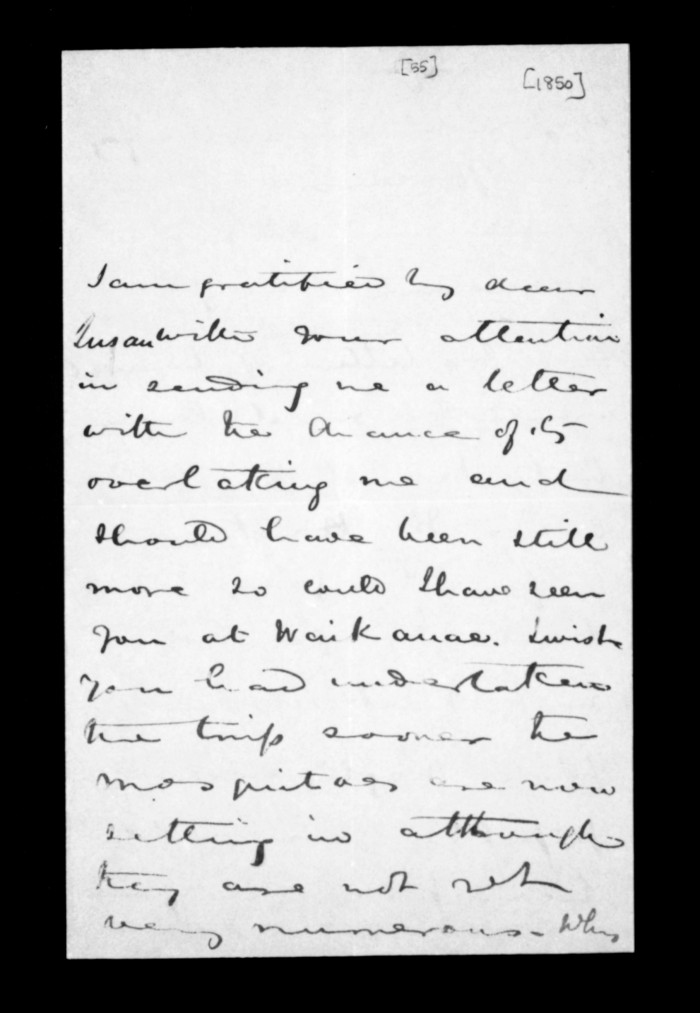 [55]
[1850]
I am gratified my dear
Susan with your attention
in sending me a letter
with the chance of its
overtaking me and
should have been still
more so could I have seen
you at Waikanae. I wish
you had undertaken
the trip sooner the
mosquitoes are now
setting in although
they are not yet
very numerous - Why